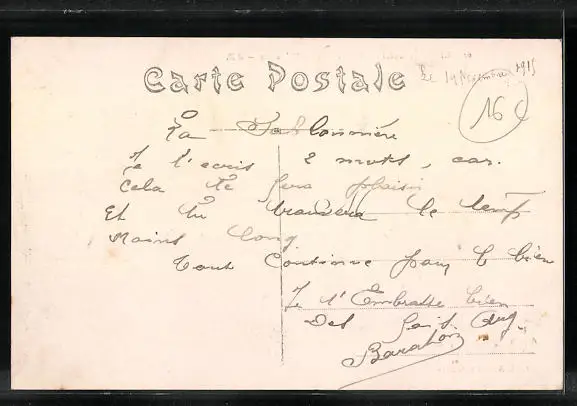 Carte Postale
Le 19 Novembre 1915
16
La Sablonnière
Je t'ecris 2 mots, car.
Cela te fera plaisir
Et tu trouvera le temp
Moins long
Tout Continue pour le bien
Je t'Embrasse bien
Des fois. Aug.
Baraton